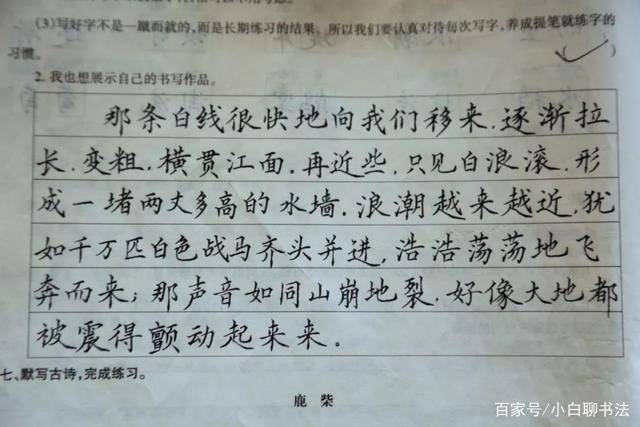 (3)写好字不是一蹴而就的,而是长期练习的结果。所以我们要认真对待每次写字,养成提笔就练字的
习惯。 ( ✓ )
2. 我也想展示自己的书写作品。
那条白线很快地向我们移来.逐渐拉
长.变粗.横贯江面.再近些.只见白浪滚.形
成一堵两丈多高的水墙.浪潮越来越近.犹
如千万匹白色战马齐头并进,浩浩荡荡地飞
奔而来;那声音如同山崩地裂.好像大地都
被震得颤动起来来。
七、默写古诗,完成练习。
鹿 柴
百家号/小白聊书法